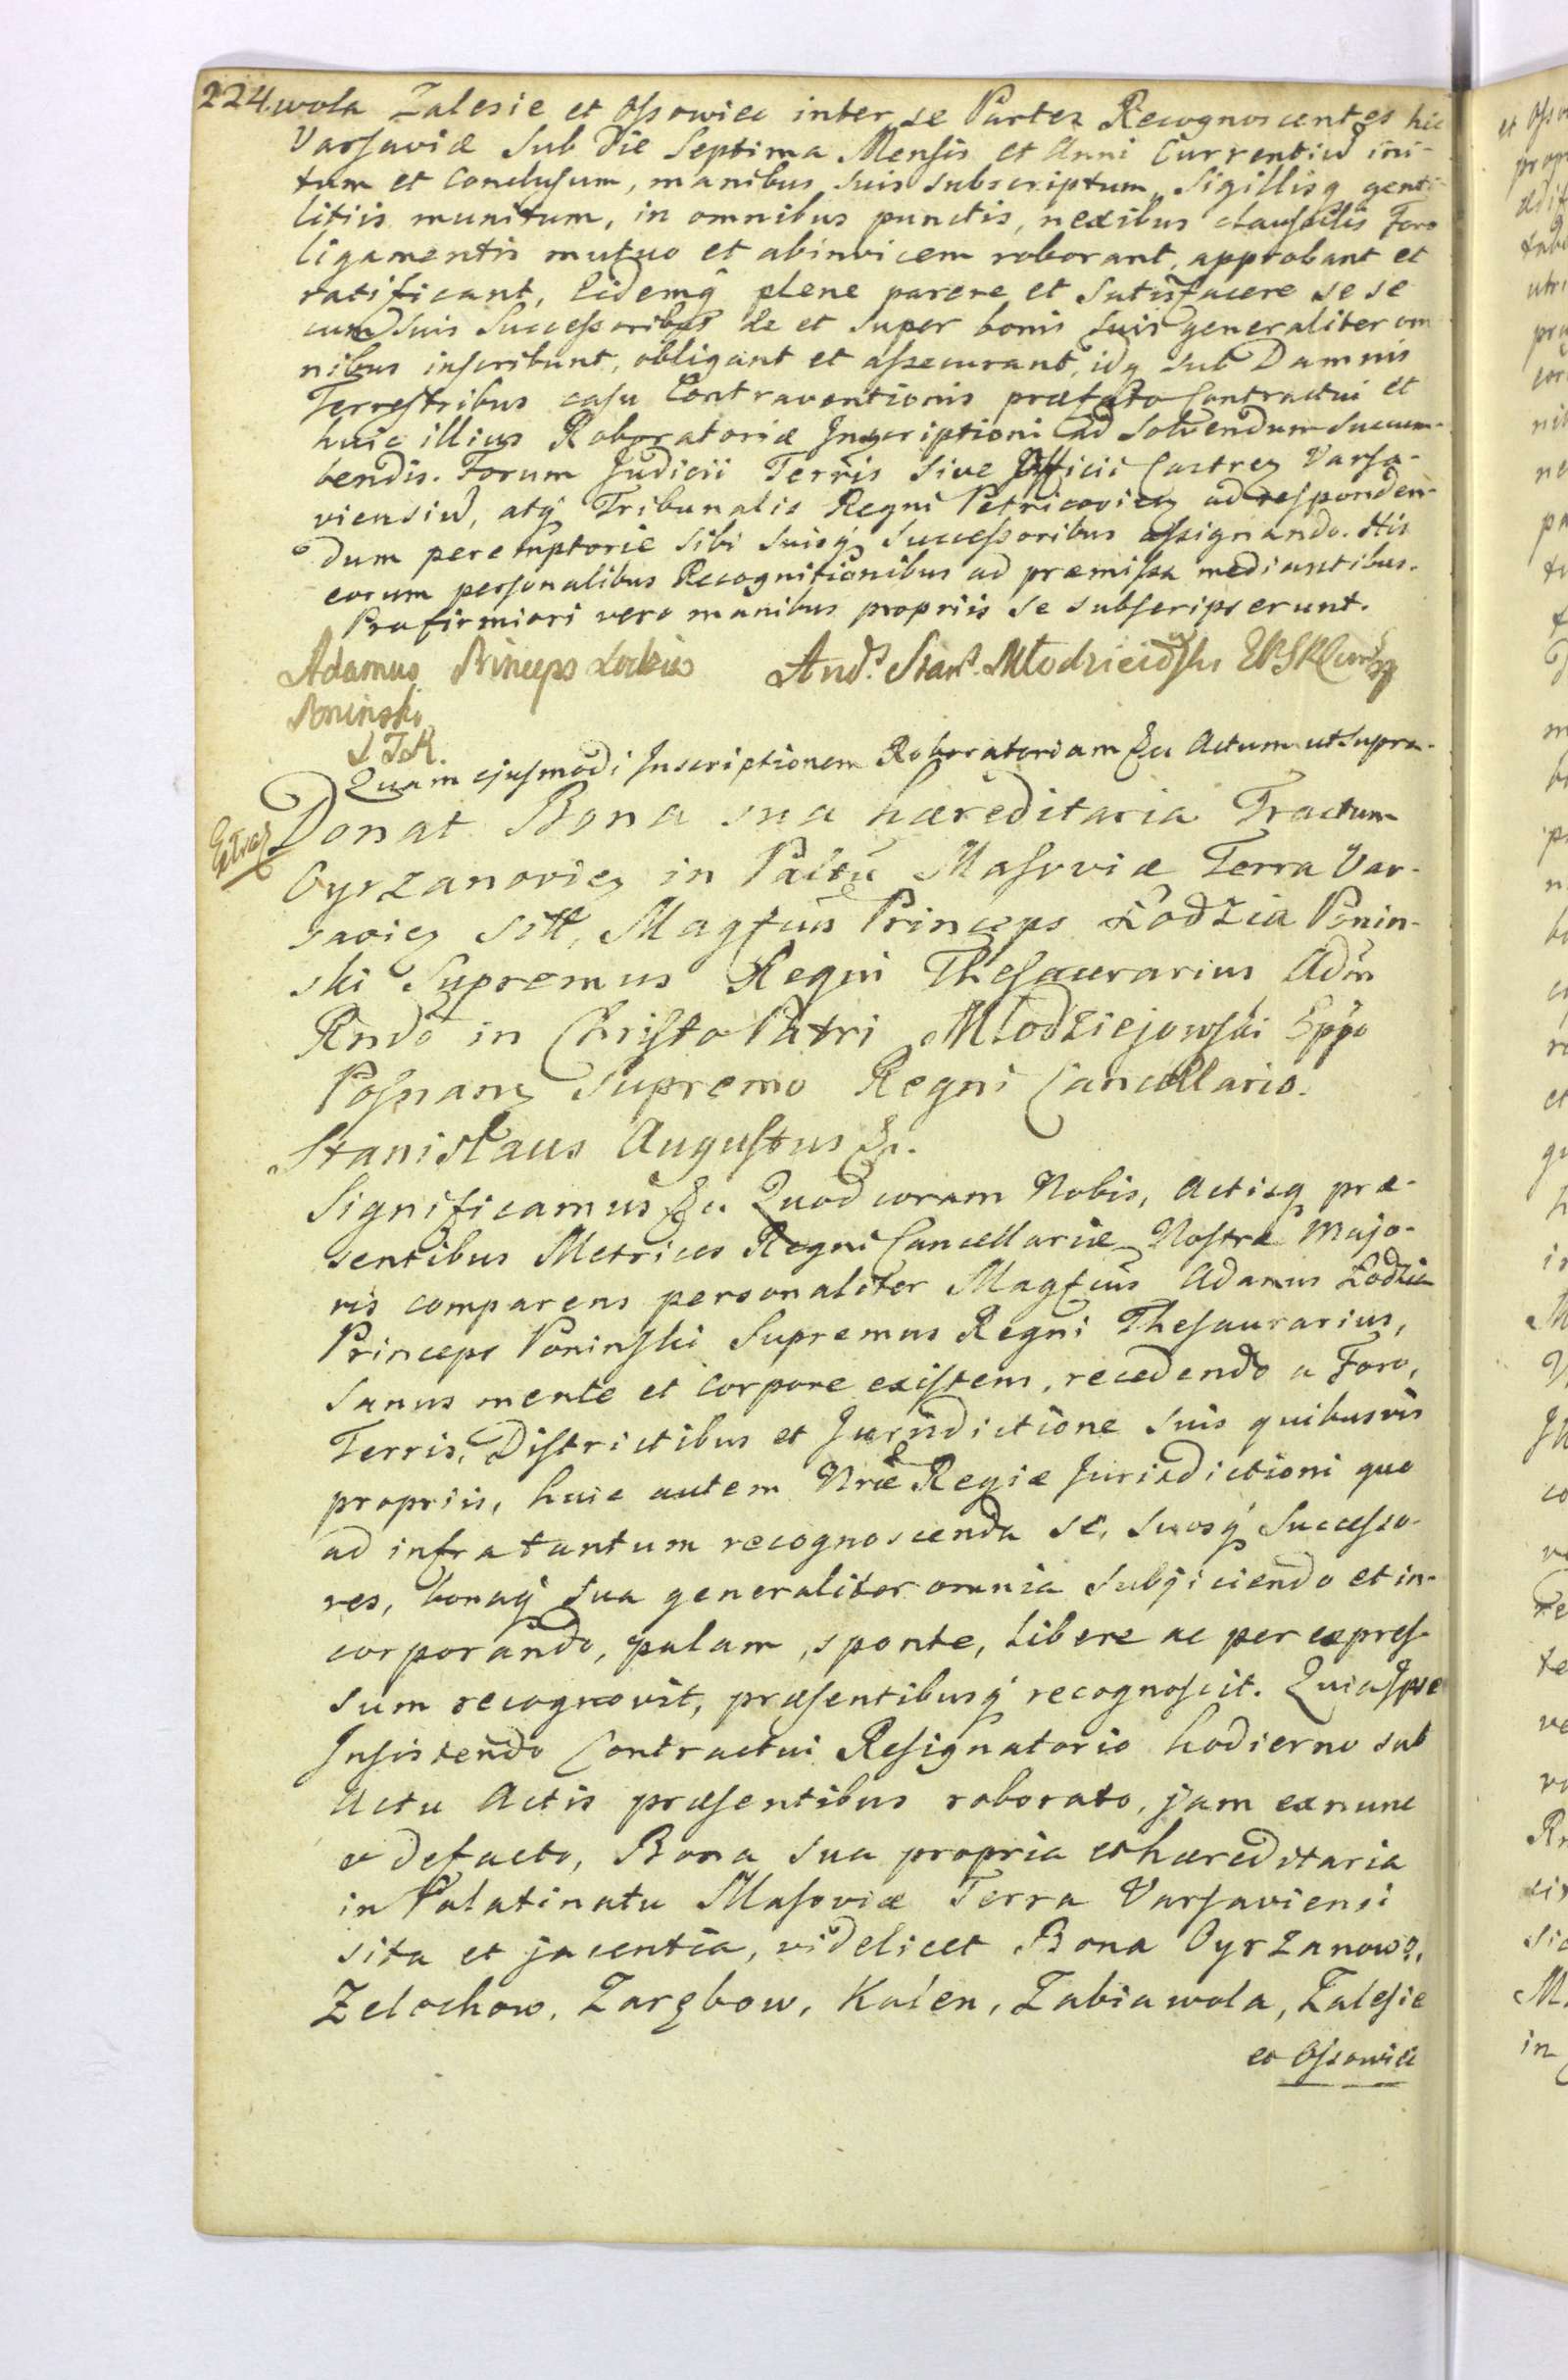 224. wola Zalesie et Ossowiec inter se Partes Recognoscentes hic
Varsaviæ sub die Septima Mensis et Anni Currentiu͂ ini-
tum et conclusum, manibus suis subscriptum, sigillisq genti-
litiis munitum, in omnibus punctis, nexibus clausulis Foro
ligamentis mutuo et abinvicem roborant, approbant et
ratificant, Eidemq̃ plene parere et satisfacere se se
cum suis Successoribus de et super bonis suis generaliter om
nibus inscribunt, obligant et assecurant, idq sub Damnis
Terrestribus casu Contraventionis præfato Contractui et
huic illius Roboratoriæ Inscriptioni ad solvendum succum-
bendis. Forum Judicii Terris sive Officii Castreņ Varsa-
viensiu͂, atq̃ Tribunalis Regni Petricovieņ ad responden-
dum peremptorie sibi suisq̃ Successoribus assignando. His
eorum personalibus Recognitionibus ad præmissa mediantibus.
Pro firmiori vero manibus propriis se subscripserunt.
Adamus Princeps Lodzia And.s Stan.s Młodzieiowski
Poninski
S T R.
Quam ejusmodi Inscriptionem Roboratoriam &c Actum ut supra.
Donat Bona sua hæreditaria Tractum
Oyrzanovieņ in Pãltũ Masoviæ Terra Var-
savieņ sitt, Magfcus Princeps Łodzia Ponin-
ski Supremus Regni Thesaurarius Adm̃
Rndõ in Christo Patri Młodziejowski Ep̃po
Posnanņ Supremo Regni Cancellario.
Stanisłaus Augustus &c.
Significamus &c. Quod coram Nobis, Actisq præ-
sentibus Metrices Regni Cancellariæ Nostræ Majo-
ris comparens personaliter Magfcus Adamus Łodzia
Princeps Poninski Supremus Regni Thesaurarius,
sanus mente et corpore existens, recedendo a Foro,
Terris, Districtibus et Jurisdictione suis quibusvis
propriis, huic autem Nr̃æ Regiæ Jurisdictioni quo
ad infra tantum recognoscenda se, suosq̃ Successo-
res, bonaq̃ sua generaliter omnia subjiciendo et in-
corporando, palam, sponte, libere ac per expres-
sum recognovit, præsentibusq̃ recognoscit. Quia Ipse
Insistendo Contractui Resignatorio hodierno sub
actu Actis præsentibus roborato, jam exnunc
et defacto, Bona sua propria et hæreditaria
in Palatinatu Masoviæ Terra Varsaviensi
sita et jacentia, videlicet Bona Oyrzanow,
Zelochow, Zarębow, Kalen, Zabia wola, Zalesie
et Ossowiec